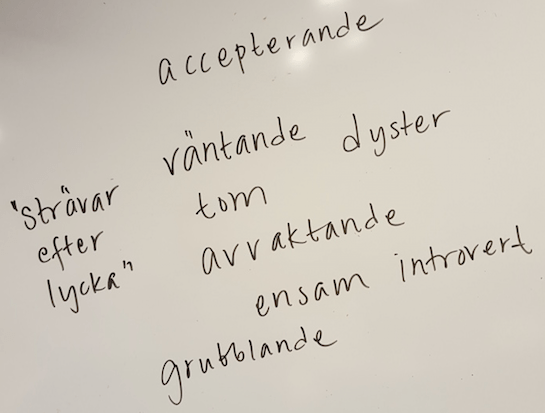 accepterande
väntande dyster
"strävar
efter
lycka"
tom
avvaktande
ensam introvert
grubblande